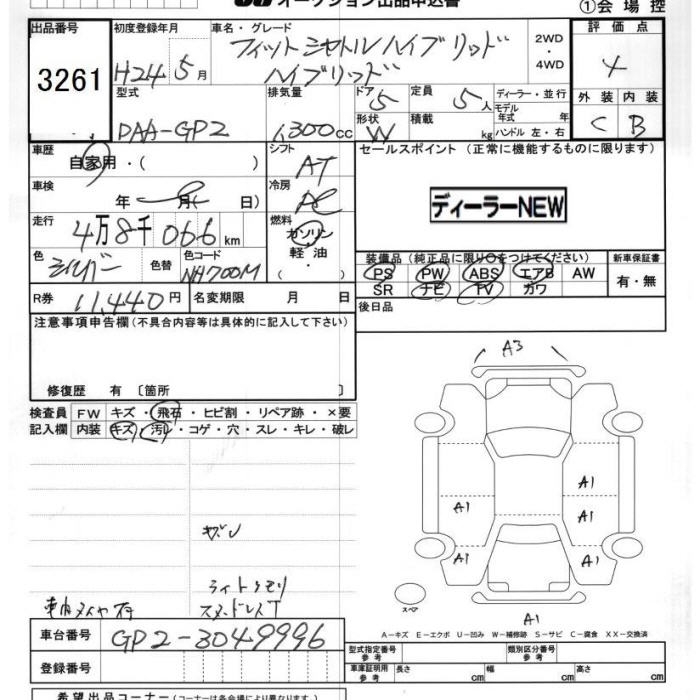 オークション出品申込書 ①会場控
出品番号 初度登録年月 車名・グレード 評価点
3261 H24 5月 フィットシャトルハイブリッド ハイブリッド 2WD・4WD 4
型式 排気量 ドア 5 定員 5人 ディーラー・並行 外装 内装
DAA-GP2 1,300cc 形状 W 積載 kg モデル年式 年 ハンドル 左・右 C B
車歴 シフト セールスポイント (正常に機能するものに限ります)
自家用・( ) AT
車検 年 月( 日) 冷房 AC ディーラーNEW
走行 4万8千066km 燃料 ガソリン 軽油・
装備品 (純正品に限り○をつけてください) 新車保証書
色 シルバー 色替 色コード NH700M PS PW ABS エアB AW 有・無
SR ナビ TV カワ
R券 11,440円 名変期限 月 日 後日品
注意事項申告欄 (不具合内容等は具体的に記入して下さい)
修復歴 有 〔箇所 〕
検査員 FW キズ・飛石・ヒビ割・リペア跡・×要
記入欄 内装 キズ・汚レ・コゲ・穴・スレ・キレ・破レ
A3
A1
A1 A1
A1 A1
スペア
A1
A−キズ E−エクボ U−凹み W−補修跡 S−サビ C−腐食 XX−交換済
車台番号 GP2-3049996
登録番号
型式指定番号 参考 類別区分番号 参考
車庫証明用 参考 長さ cm 幅 cm 高さ cm
希望出品コーナー (コーナーは各会場により異なります。)